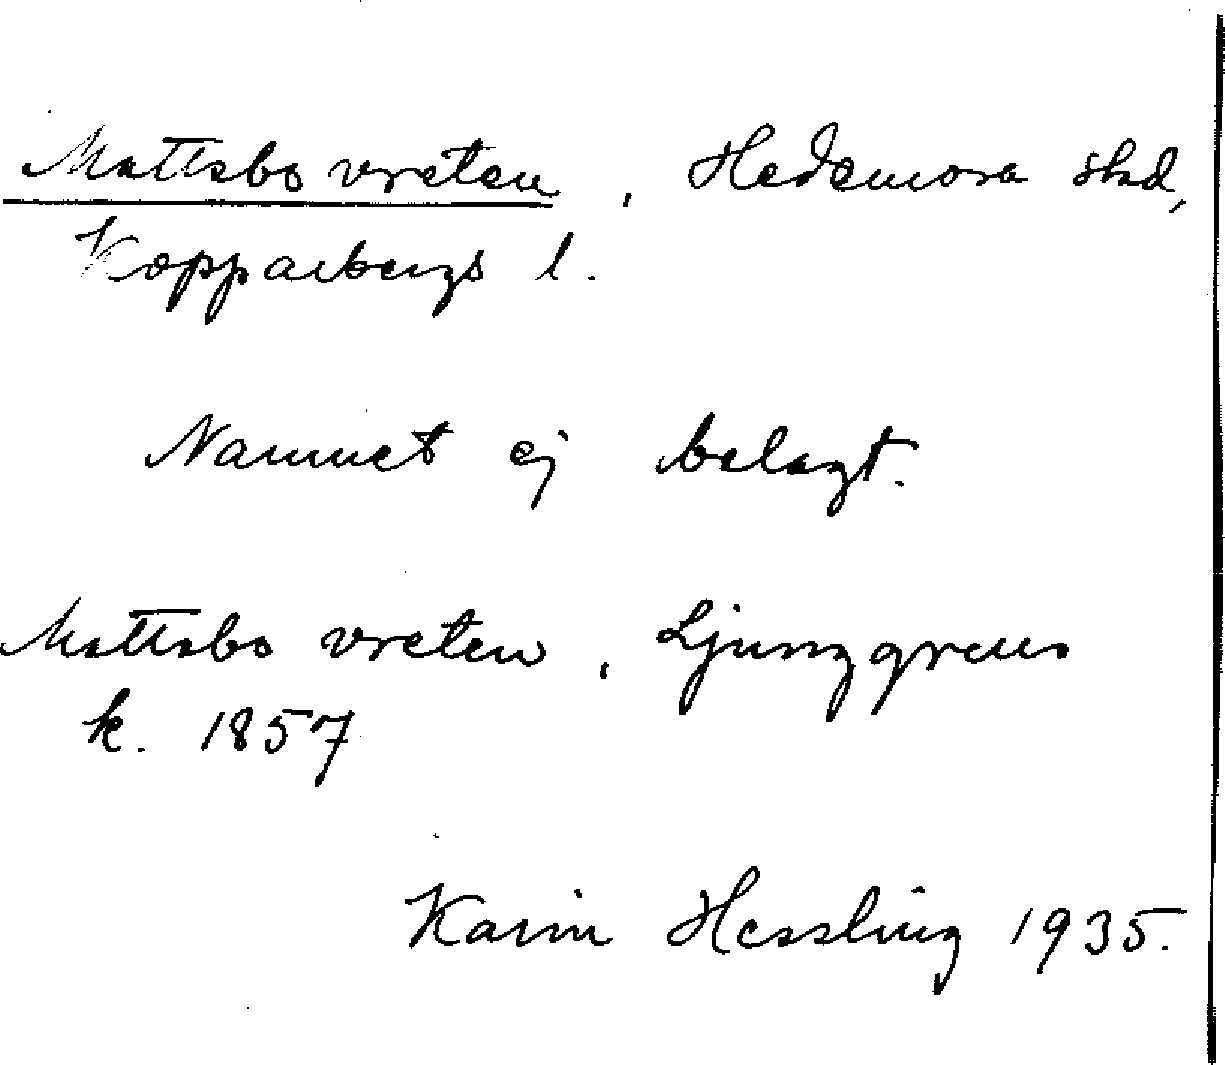 Mattsbo vreten, Hedemora stad,
Kopparbergs l.
Namnet ej belagt.
Mattsbo vreten, Ljunggrens
k. 1857
Karin Hessling 1935.